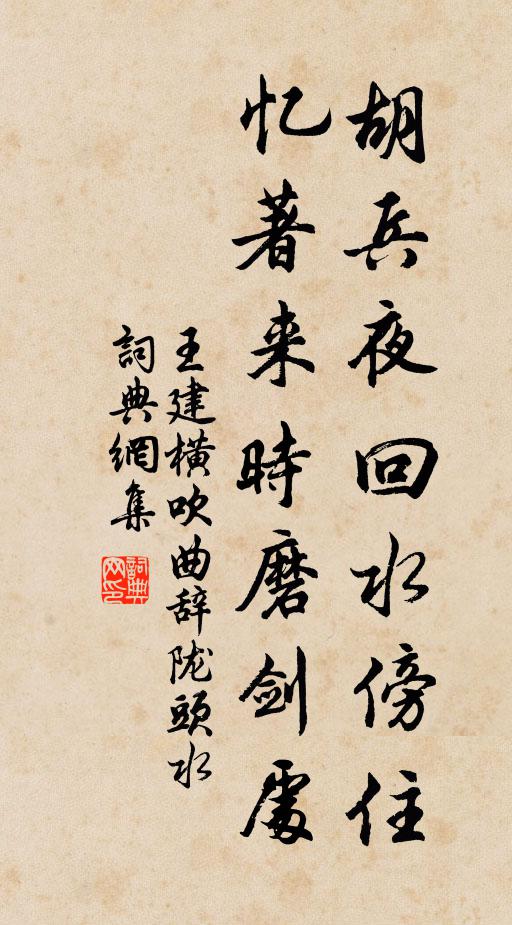 胡兵夜回水傍住
忆著来時磨剑處
王建横吹曲辞陇頭水
詞典網集
詞典網印